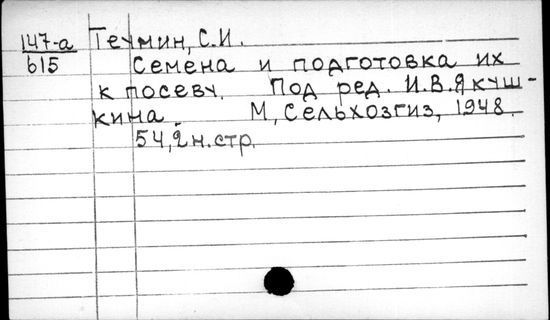 147-а Течмин, С.И.
615 Семена и подготовка их
к посеву. Под ред. И.В.Якуш-
кина. М, Сельхозгиз, 1948.
54,2н.стр.